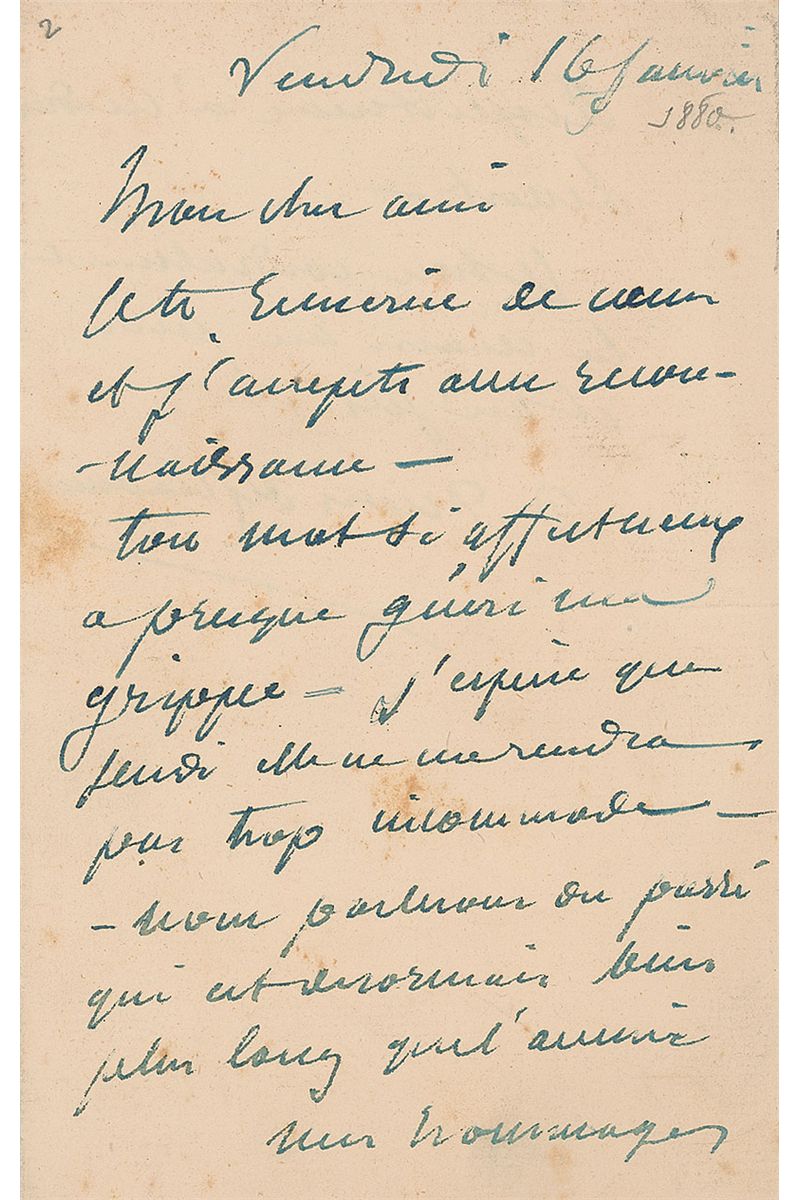 2
Vendredi 16 Janvier
1880.
Mon cher ami
je te remercie de cœur
et j'accepte avec recon-
-naissance —
ton mot si affectueux
a presque guéri ma
grippe = j'espère que
jeudi elle ne me rendra
pas trop incommode —
— nous parlerons du passé
qui est desormais bien
plus long que l'avenir
mes hommages